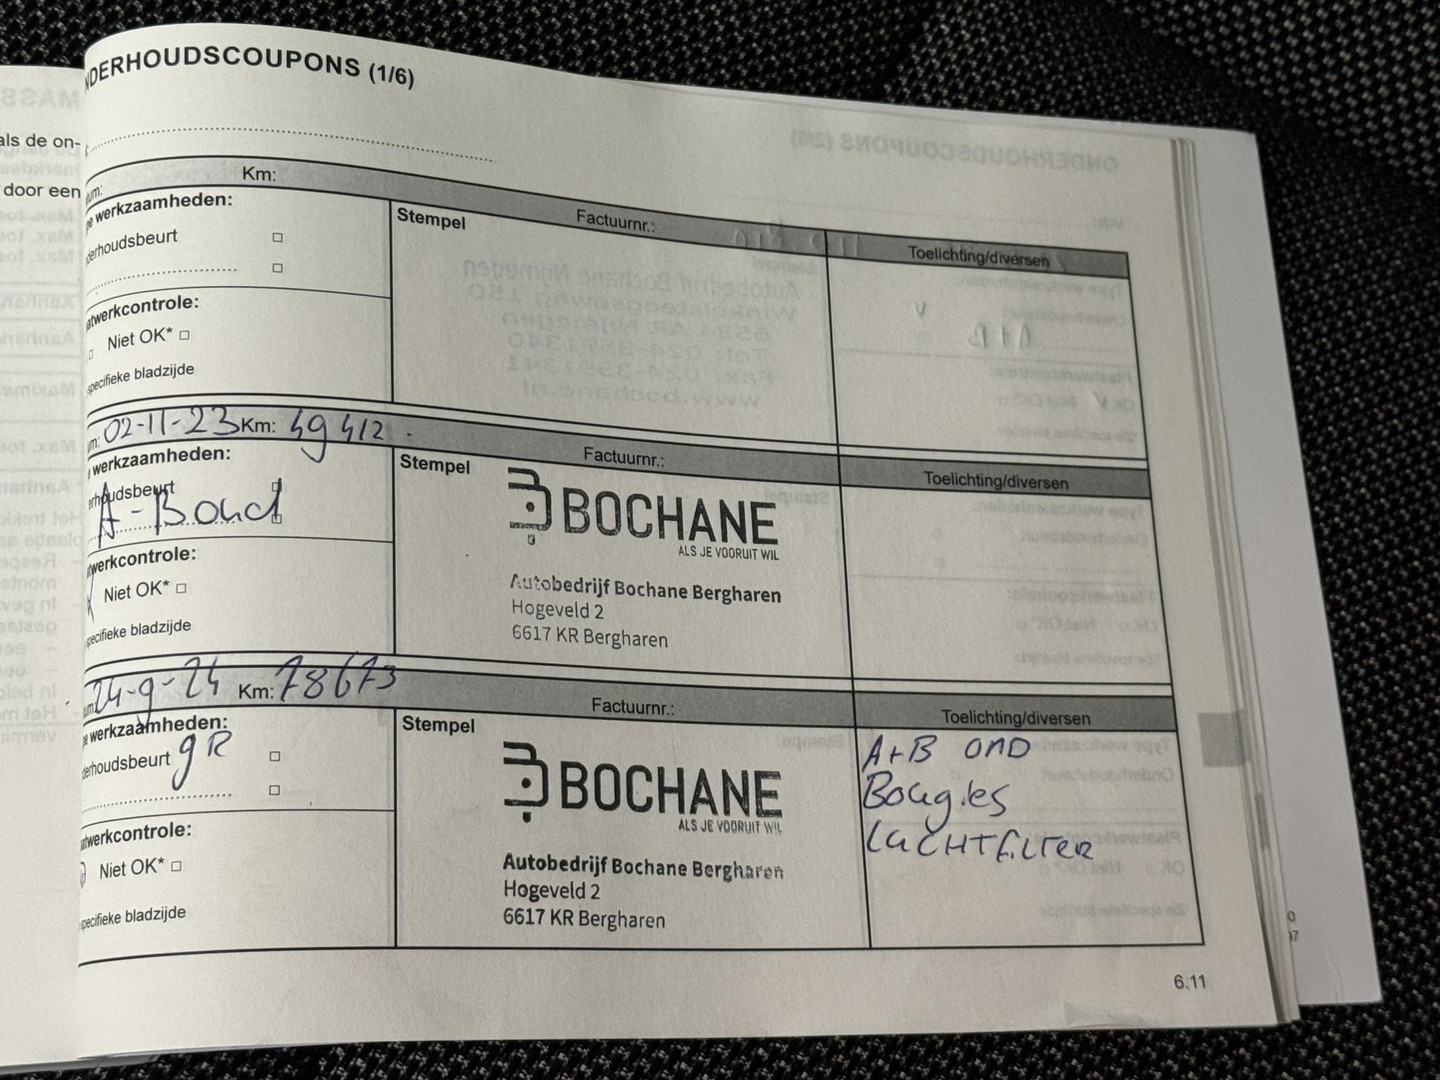 NDERHOUDSCOUPONS (1/6)
als de on-
door een
um:
Km:
e werkzaamheden:
derhoudsbeurt
Stempel
Factuurnr.:
Toelichting/diversen
atwerkcontrole:
Niet OK*
specifieke bladzijde
02-11-23 Km: 49 412
werkzaamheden:
rhoudsbeurt
A-Bond
Stempel
Factuurnr.:
Toelichting/diversen
BOCHANE
ALS JE VOORUIT WIL
Autobedrijf Bochane Bergharen
Hogeveld 2
6617 KR Bergharen
twerkcontrole:
Niet OK*
specifieke bladzijde
24-9-24 Km: 78673
e werkzaamheden:
derhoudsbeurt gR
Stempel
Factuurnr.:
Toelichting/diversen
BOCHANE
ALS JE VOORUIT WIL
Autobedrijf Bochane Bergharen
Hogeveld 2
6617 KR Bergharen
A+B OND
Bougies
LuCHTfiLTER
atwerkcontrole:
Niet OK*
specifieke bladzijde
6.11